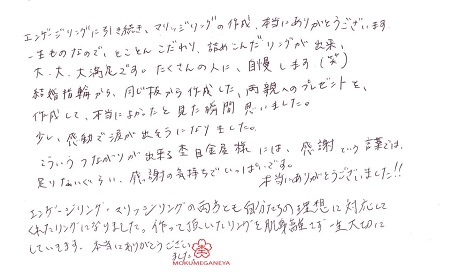 エンゲージリングに引き続き、マリッジリングの作成、本当にありがとうございます
一生ものなので、とことんこだわり、詰めこんだリングが出来、
大、大、大満足です。たくさんの人に、自慢します(笑)
結婚指輪から、同じ板から作成した、両親へのプレゼントを、
作成して、本当によかったと見た瞬間思いました。
少し、感動で涙が出そうになりました。
こういうつながりが出来る杢目金屋様には、感謝ていう言葉では、
足りないくらい、感謝の気持ちでいっぱいです。
本当にありがとうございました!!
エンゲージリング・マリッジリングの両方とも自分たちの理想に対応して
くれたリングになりました。作って頂いたリングを肌身離さず一生大切に
していきます。本当にありがとうござい
ました
MOKUMEGANEYA